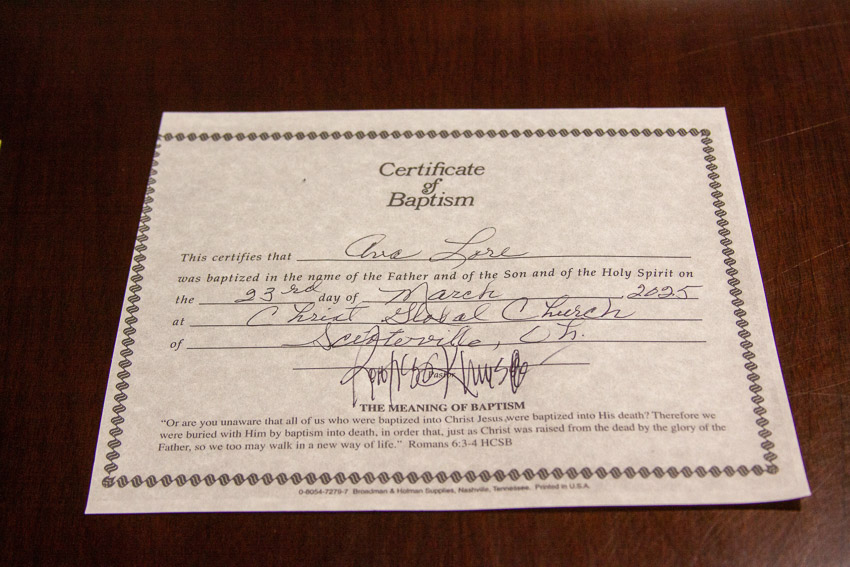 Certificate
of
Baptism
This certifies that Ava Lore
was baptized in the name of the Father and of the Son and of the Holy Spirit on
the 23rd day of March, 2025
at Christ Global Church
of Sciotoville, Oh.
Pastor
THE MEANING OF BAPTISM
“Or are you unaware that all of us who were baptized into Christ Jesus were baptized into His death? Therefore we
were buried with Him by baptism into death, in order that, just as Christ was raised from the dead by the glory of the
Father, so we too may walk in a new way of life.” Romans 6:3-4 HCSB
0-8054-7279-7 Broadman & Holman Supplies, Nashville, Tennessee. Printed in U.S.A.